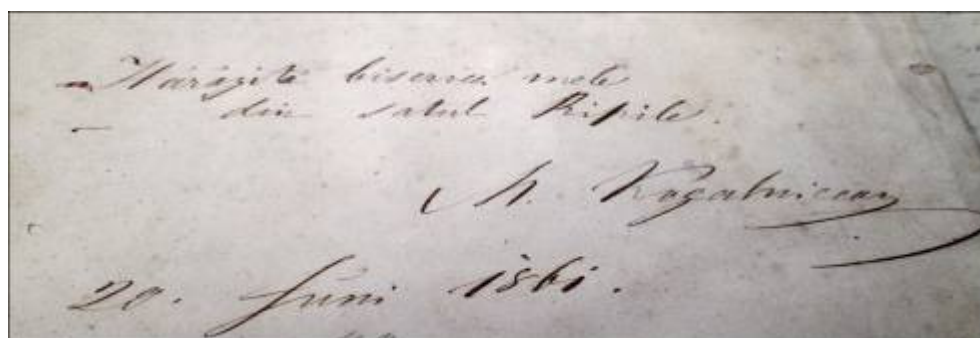 Hărăzită biserica mele
din satul Rîpile.
M. Kogalniceanu
20. Juni 1861.